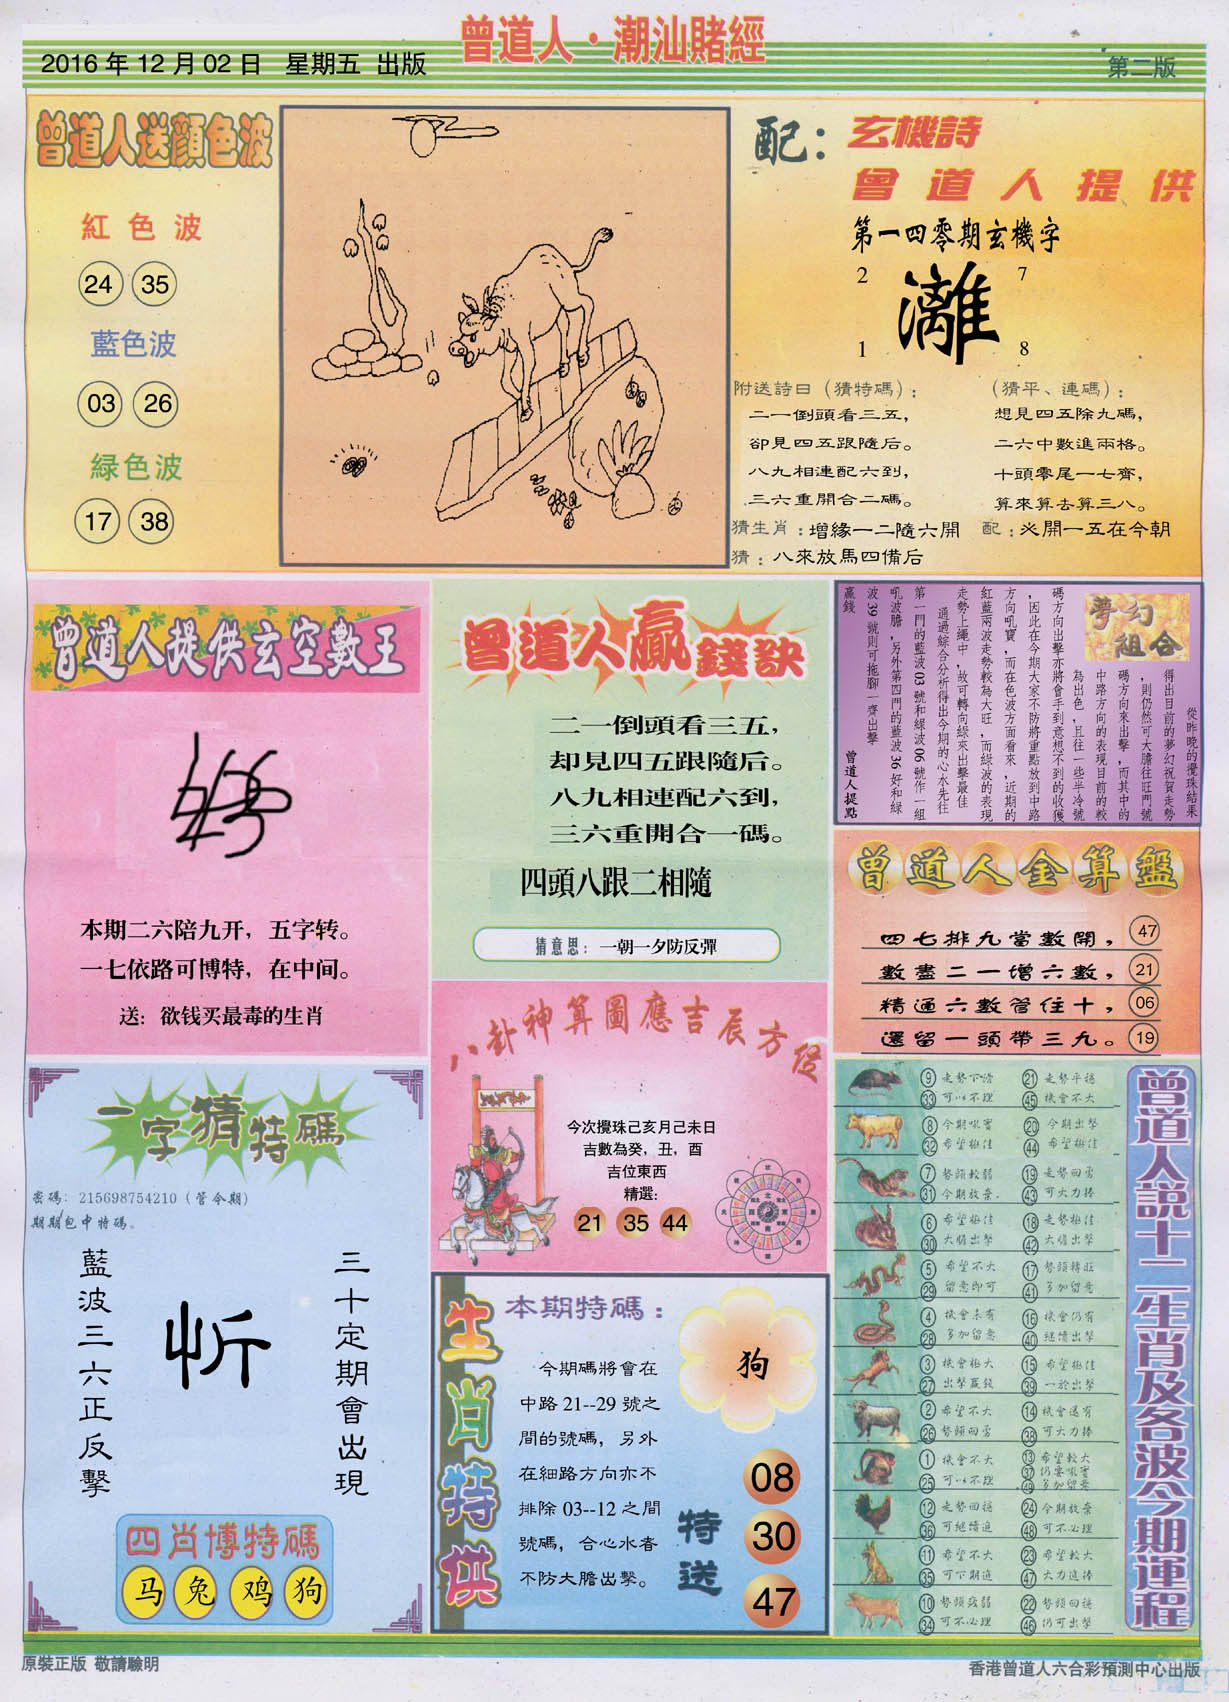 曾道人·潮汕賭經
2016年12月02日 星期五 出版
第二版
曾道人送顏色波
紅色波
24 35
藍色波
03 26
緑色波
17 38
配：玄機詩
曾道人提供
第一四零期玄機字
2 7
灕
1 8
附送詩曰（猜特碼）：
二一倒頭看三五，
卻見四五跟隨后。
八九相連配六到，
三六重開合二碼。
（猜平、連碼）：
想見四五除九碼，
二六中數進兩格。
十頭零尾一七齊，
算來算去算三八。
猜生肖：增緣一二隨六開
配：必開一五在今朝
猜：八來放馬四備后
曾道人提供玄空數王
本期二六陪九开，五字转。
一七依路可博特，在中间。
送：欲钱买最毒的生肖
曾道人贏錢訣
二一倒頭看三五，
却見四五跟隨后。
八九相連配六到，
三六重開合一碼。
四頭八跟二相隨
猜意思：一朝一夕防反彈
夢幻組合
從昨晚的攪珠結果
得出目前的夢幻祝賀走勢
，則仍然可大膽往旺門號
碼方向來出擊，而其中的
中路方向的表現目前的較
為出色，且往一些半冷號
碼方向出擊亦將會手到意想不到的收獲
，因此在今期大家不防將重點放到中路
方向吼寶，而在色波方面看來，近期的
紅藍兩波走勢較為大旺，而綠波的表現
走勢上繩中，故可轉向綠來出擊最佳
通過綜合分析得出今期的心水先往
第一門的藍波03號和綠波06號作一組
吼波膽，另外第四門的藍波36好和綠
波39號則可拖腳一齊出擊
贏錢
曾道人提點
曾道人金算盤
四七排九當數開， 47
數盡二一增六數， 21
精通六數管住十， 06
還留一頭帶三九。 19
八卦神算圖應吉辰方位
今次攪珠己亥月己未日
吉數為癸，丑，酉
吉位東西
精選：
21 35 44
一字猜特碼
密碼：215698754210（管今期）
期期包中特碼。
三十定期會出現
忻
藍波三六正反擊
四肖博特碼
马 兔 鸡 狗
生肖特供
本期特碼：
狗
今期碼將會在
中路21--29號之
間的號碼，另外
在細路方向亦不
排除03--12之間
號碼，合心水者
不防大膽出擊。
特送
08
30
47
曾道人説十二生肖及各波今期運程
9 走勢下滑 21 走勢平穩
33 可以不理 45 機會不大
8 今期吼寶 20 今期出擊
32 希望極佳 44 希望極佳
7 勢頭較弱 19 走勢回勇
31 今期放棄. 43 可大力捧
6 希望極佳 18 走勢極佳
30 大膽出擊 42 大膽出擊
5 希望不大 17 勢頭轉旺
29 留意即可 41 多加留意
4 機會未有 16 機會仍有
28 多加留意 40 繼續出擊
3 機會極大 15 希望極佳
27 出擊贏錢 39 一於出擊
2 希望不大 14 機會還有
26 勢頭回勇 38 可大力捧
1 機會不大 13 希望較大
25 可以不理 37 仍要吼實
49 多加留意
12 走勢回穩 24 今期放棄
36 可繼續追 48 可不必理
11 希望不大 23 希望較大
35 可下期追 47 大力追捧
10 勢頭疲弱 22 勢頭回穩
34 可不必理 46 仍可出擊
原裝正版 敬請驗明
香港曾道人六合彩預測中心出版